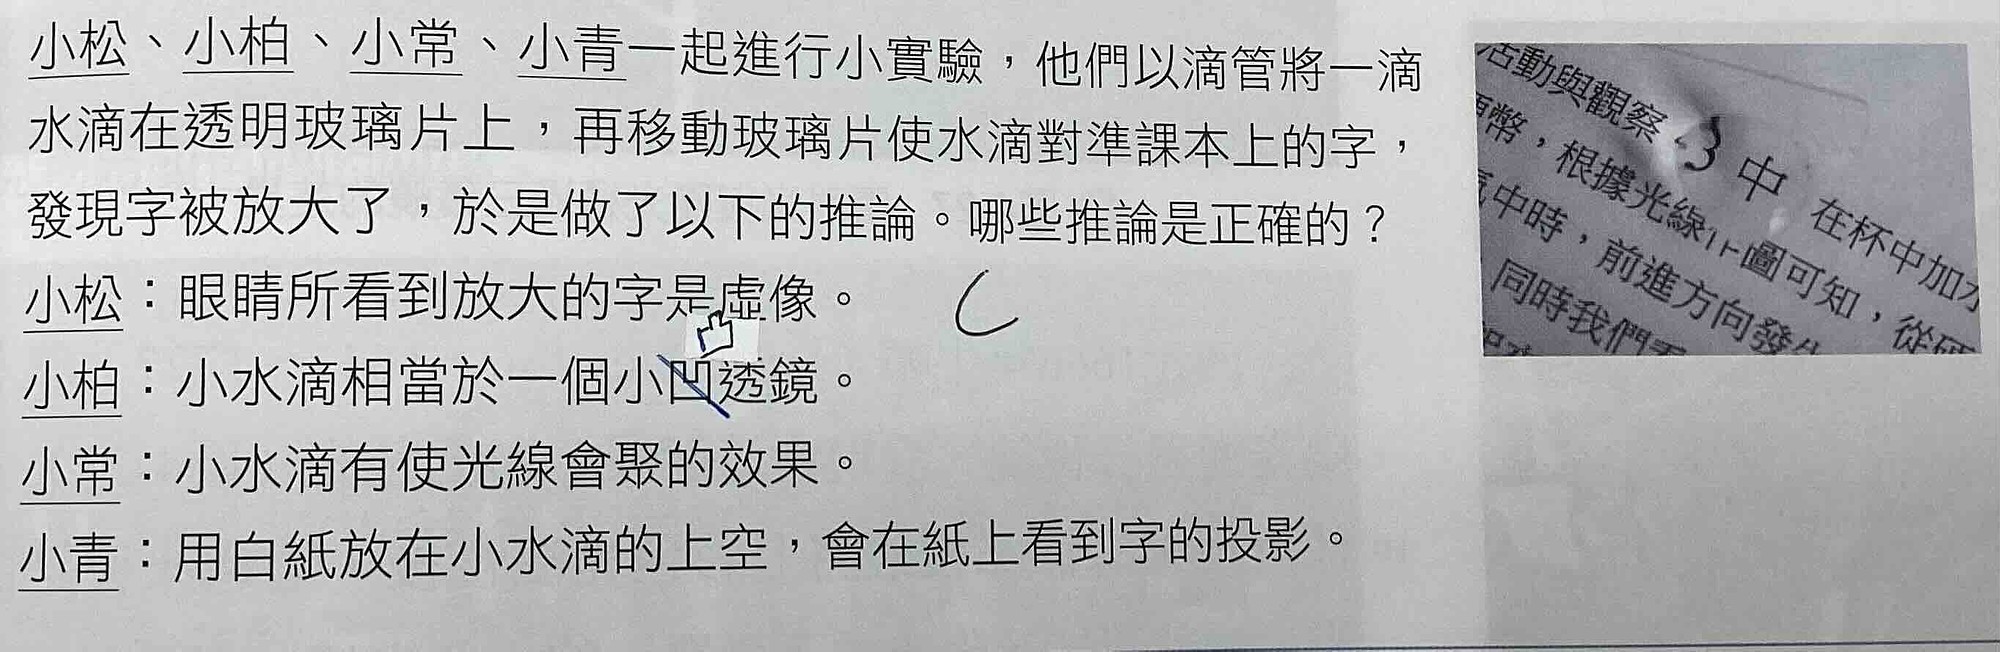 小松、小柏、小常、小青一起進行小實驗，他們以滴管將一滴
水滴在透明玻璃片上，再移動玻璃片使水滴對準課本上的字，
發現字被放大了，於是做了以下的推論。哪些推論是正確的？
小松：眼睛所看到放大的字是虛像。
C
凸
小柏：小水滴相當於一個小凹透鏡。
小常：小水滴有使光線會聚的效果。
小青：用白紙放在小水滴的上空，會在紙上看到字的投影。
活動與觀察
中 在杯中加水
幣，根據光線 圖可知，從硬
中時，前進方向發生
同時我們看